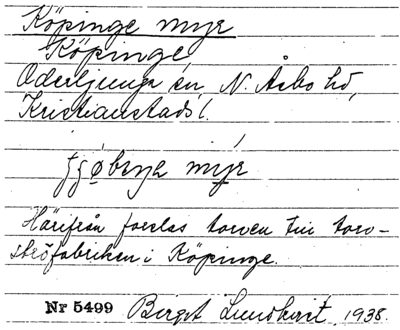 Köpinge myr
Köpinge
Oderljunga sn, N. Åsbo hd,
Kristianstads l.
myr
Härifrån forslas torven till torv-
ströfabriken i Köpinge.
Nr 5499 Birgit Lundkvist, 1938.